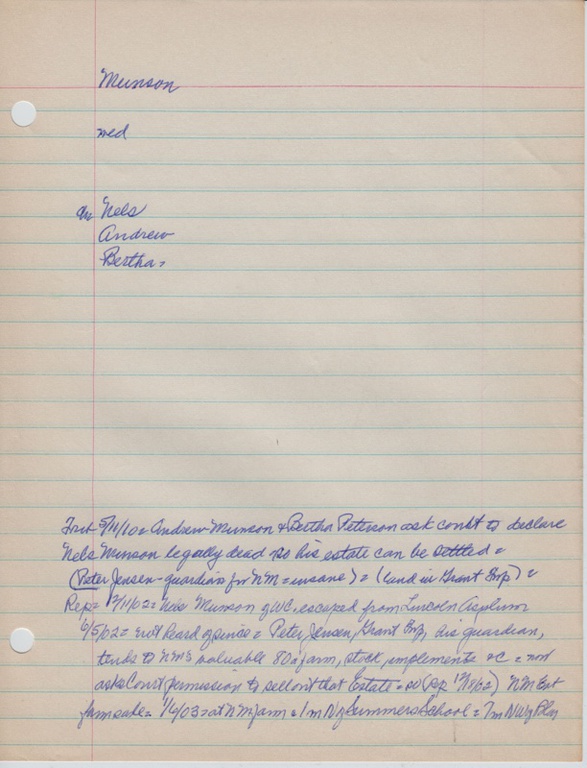 Munson
med
ch Nels
Andrew
Bertha =
5/11/10 = Andrew Munson & Bertha Peterson ask court to declare
Nels Munson legally dead so his estate can be settled =
(Peter Jensen - guardian for NM = insane) = (land in Grant Twp) =
Rep = 12/11/02 = Nels Munson of WC, escaped from Lincoln Asylum
9/5/02 = not heard of since = Peter Jensen, Grant Twp, his guardian,
tends to NM's valuable 80 a farm, stock, implements &c = now
asks Court permission to sell out that Estate = OO (Rep 12/18/02) NM Est
farm sale = 1/6/03 = at NM farm = 1 m N of Summers School = 7 m NW of Pln